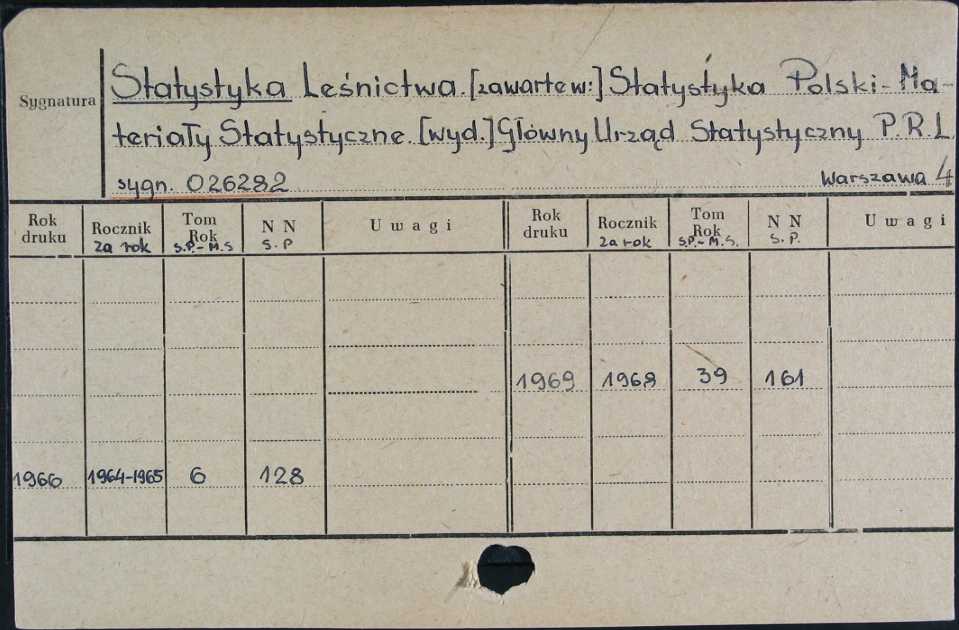 Sygnatura
Statystyka Leśnictwa. [zawarte w:] Statystyka Polski - Ma-
teriały Statystyczne. [wyd.] Główny Urząd Statystyczny P.R.L.
sygn. 026282 Warszawa 4
Rok druku | Rocznik za rok | Tom Rok S.P.-M.S | N N S.P | Uwagi | Rok druku | Rocznik za rok | Tom Rok S.P.-M.S. | N N S.P. | Uwagi
1969 | 1968 | 39 | 161
1966 | 1964-1965 | 6 | 128